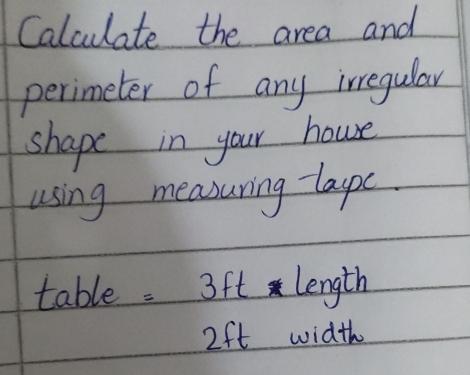 Calculate the area and
perimeter of any irregular
shape in your house
using measuring tape.
table = 3ft length
2ft width